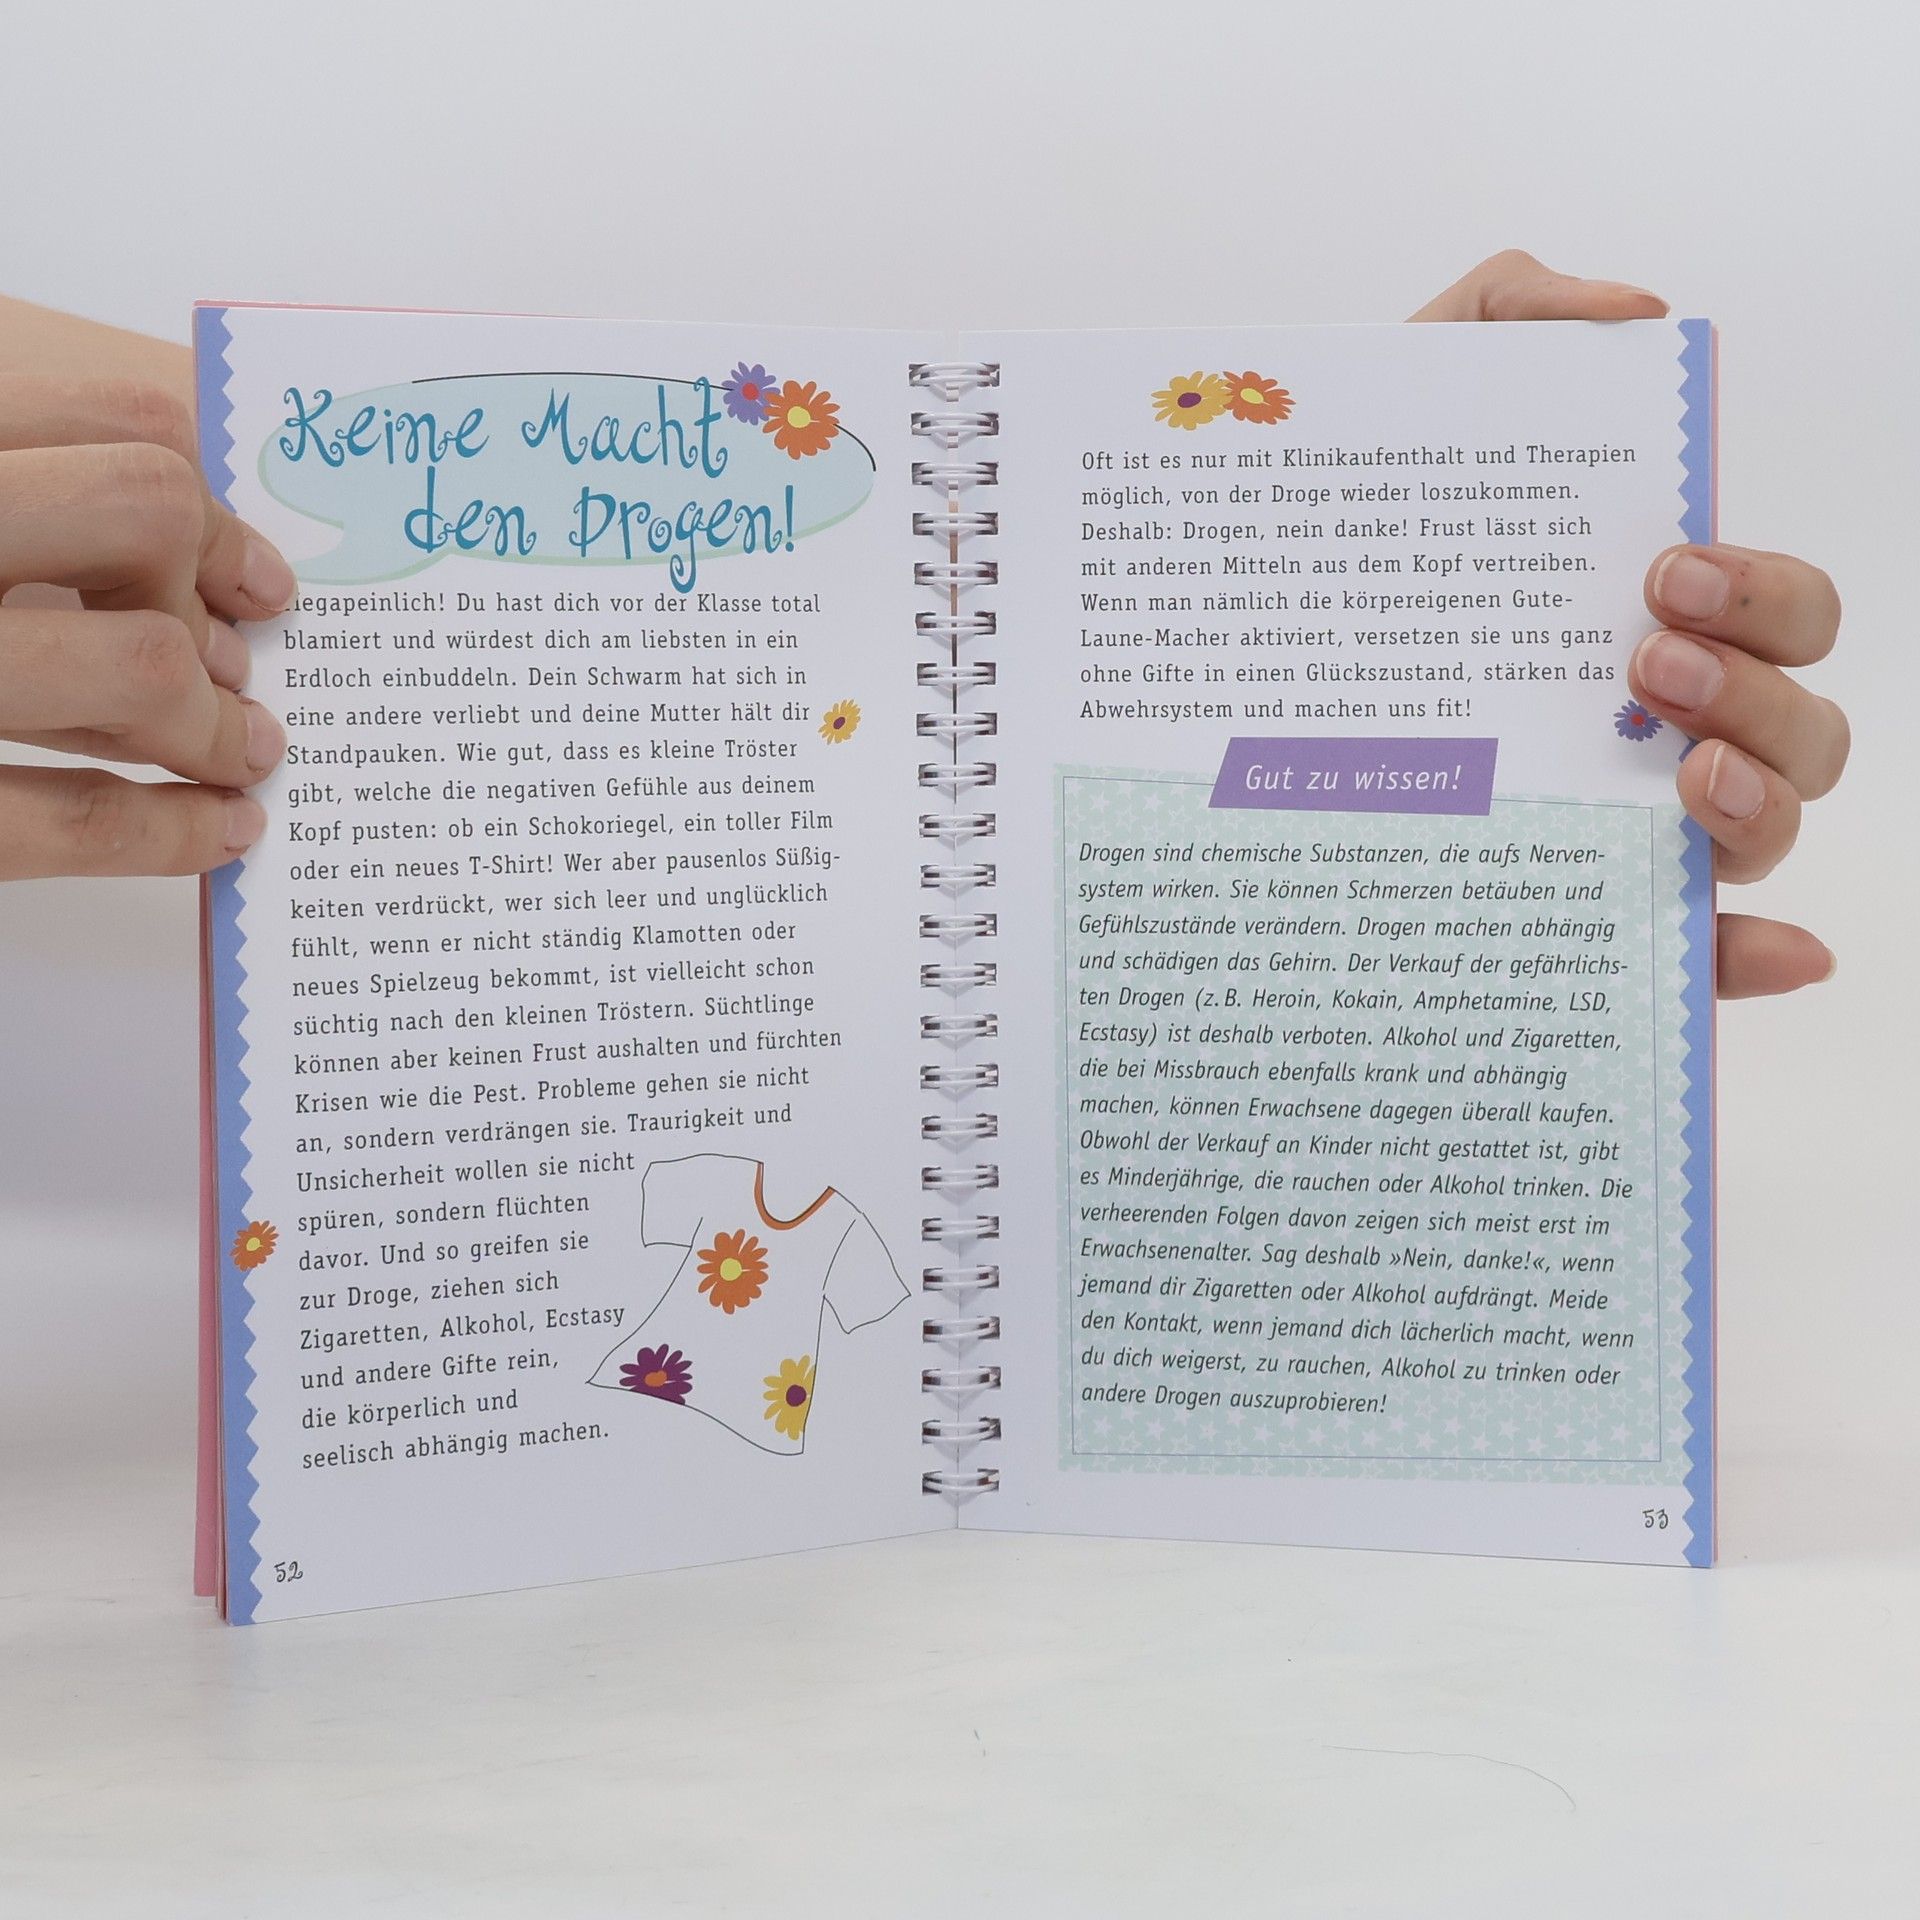 Keine Macht
den Drogen!
Megapeinlich! Du hast dich vor der Klasse total
blamiert und würdest dich am liebsten in ein
Erdloch einbuddeln. Dein Schwarm hat sich in
eine andere verliebt und deine Mutter hält dir
Standpauken. Wie gut, dass es kleine Tröster
gibt, welche die negativen Gefühle aus deinem
Kopf pusten: ob ein Schokoriegel, ein toller Film
oder ein neues T-Shirt! Wer aber pausenlos Süßig-
keiten verdrückt, wer sich leer und unglücklich
fühlt, wenn er nicht ständig Klamotten oder
neues Spielzeug bekommt, ist vielleicht schon
süchtig nach den kleinen Tröstern. Süchtlinge
können aber keinen Frust aushalten und fürchten
Krisen wie die Pest. Probleme gehen sie nicht
an, sondern verdrängen sie. Traurigkeit und
Unsicherheit wollen sie nicht
spüren, sondern flüchten
davor. Und so greifen sie
zur Droge, ziehen sich
Zigaretten, Alkohol, Ecstasy
und andere Gifte rein,
die körperlich und
seelisch abhängig machen.
52
Oft ist es nur mit Klinikaufenthalt und Therapien
möglich, von der Droge wieder loszukommen.
Deshalb: Drogen, nein danke! Frust lässt sich
mit anderen Mitteln aus dem Kopf vertreiben.
Wenn man nämlich die körpereigenen Gute-
Laune-Macher aktiviert, versetzen sie uns ganz
ohne Gifte in einen Glückszustand, stärken das
Abwehrsystem und machen uns fit!
Gut zu wissen!
Drogen sind chemische Substanzen, die aufs Nerven-
system wirken. Sie können Schmerzen betäuben und
Gefühlszustände verändern. Drogen machen abhängig
und schädigen das Gehirn. Der Verkauf der gefährlichs-
ten Drogen (z. B. Heroin, Kokain, Amphetamine, LSD,
Ecstasy) ist deshalb verboten. Alkohol und Zigaretten,
die bei Missbrauch ebenfalls krank und abhängig
machen, können Erwachsene dagegen überall kaufen.
Obwohl der Verkauf an Kinder nicht gestattet ist, gibt
es Minderjährige, die rauchen oder Alkohol trinken. Die
verheerenden Folgen davon zeigen sich meist erst im
Erwachsenenalter. Sag deshalb »Nein, danke!«, wenn
jemand dir Zigaretten oder Alkohol aufdrängt. Meide
den Kontakt, wenn jemand dich lächerlich macht, wenn
du dich weigerst, zu rauchen, Alkohol zu trinken oder
andere Drogen auszuprobieren!
53